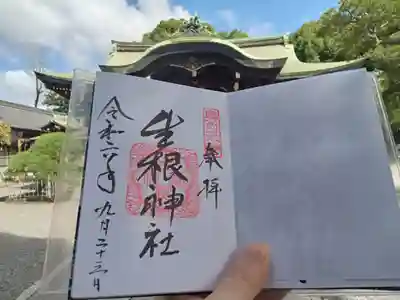 奉拝
生根神社
令和二年
九月二十三日